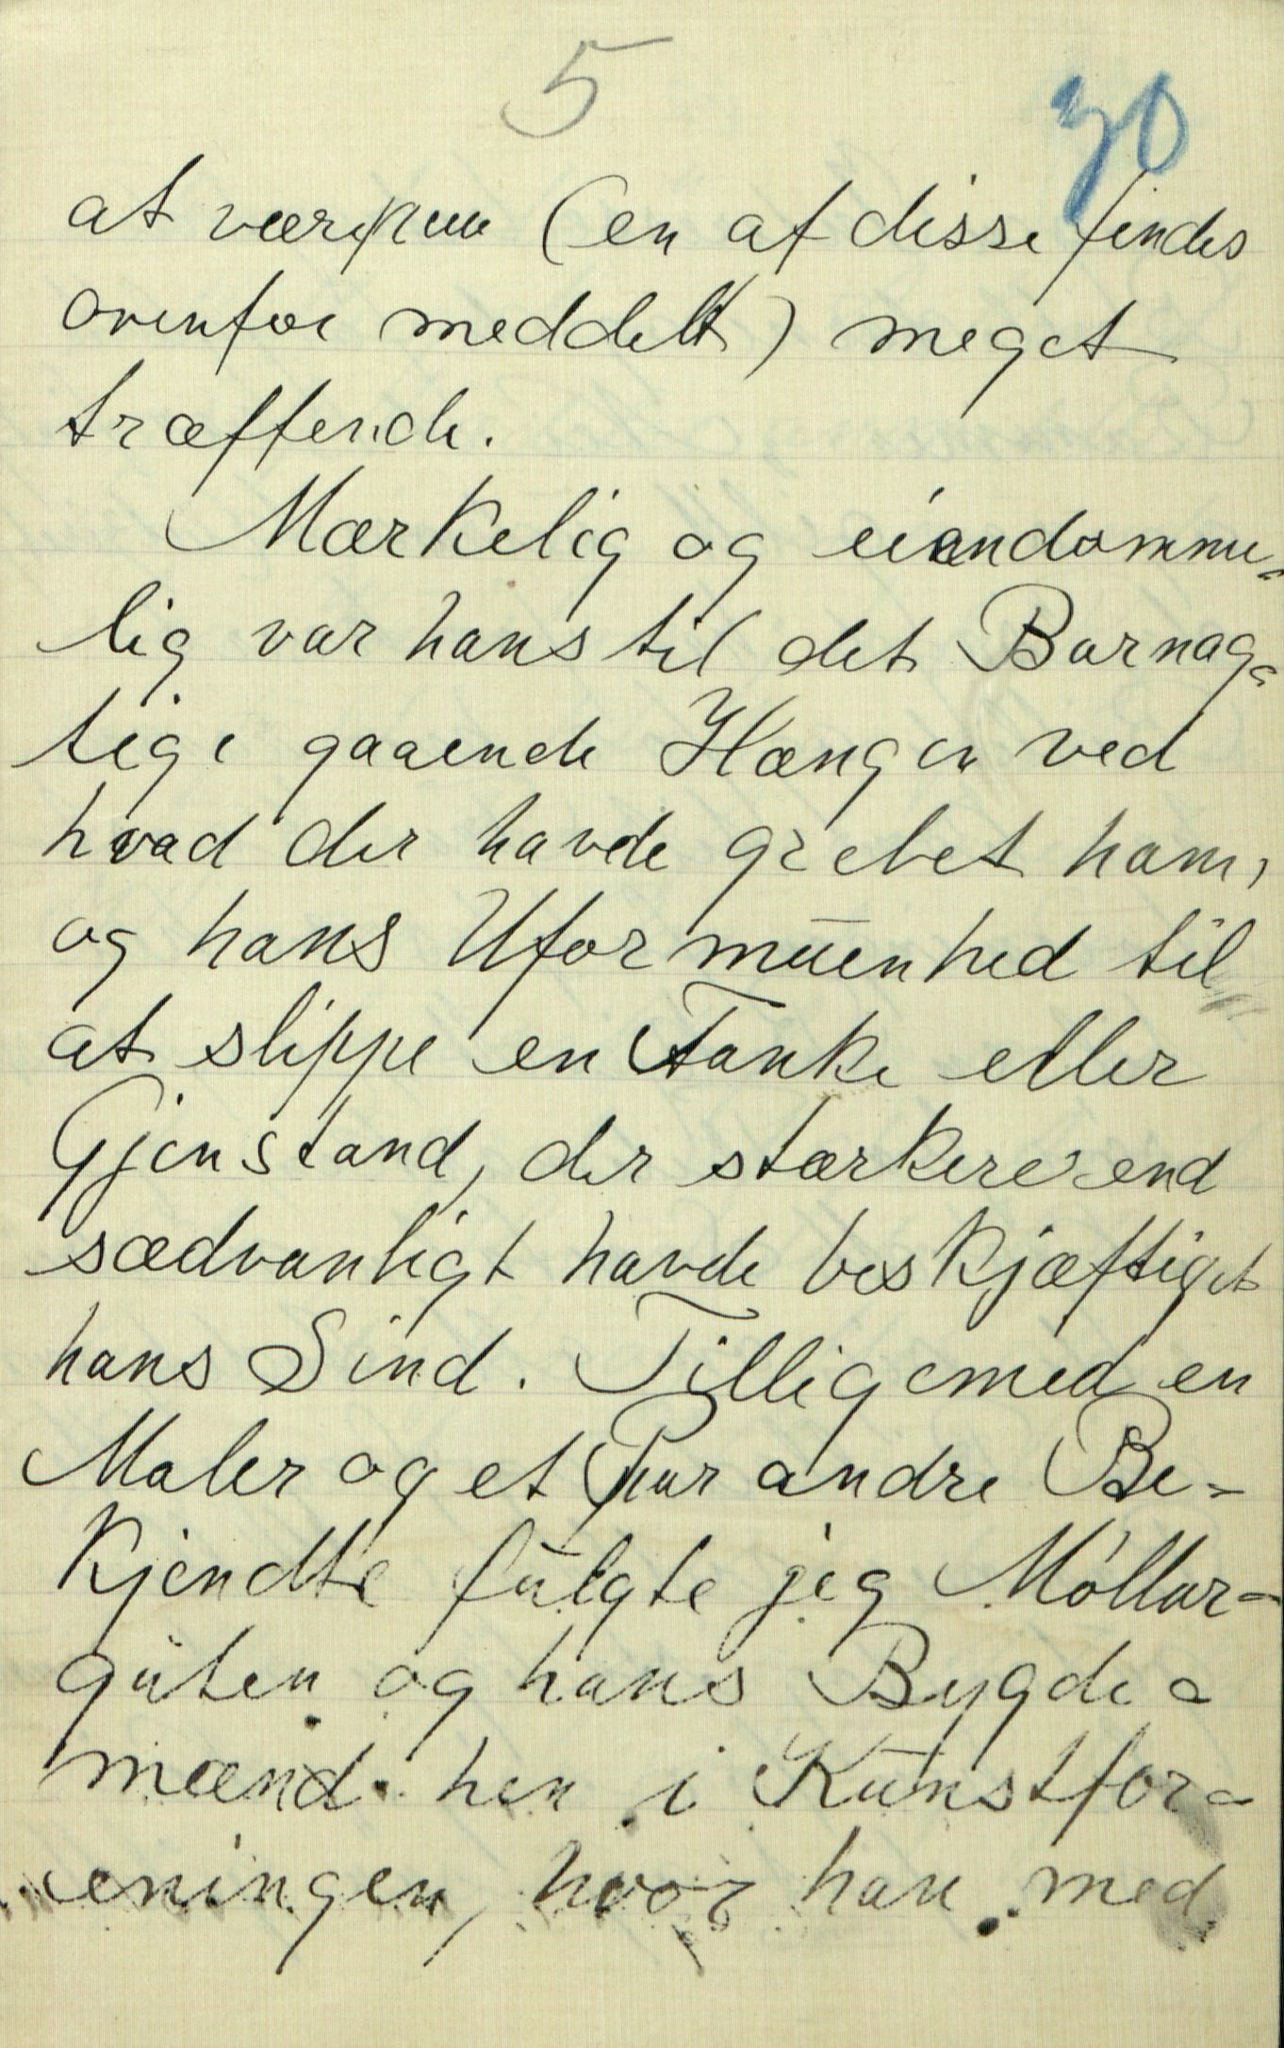 5
70
at være (en af disse findes
ovenfor meddelt) meget
træffende.
Mærkelig og eiendomme-
lig var hans til det Barnag-
tige gaaende Hængen ved
hvad der havde grebet ham,
og hans Uformuenhed til
at slippe en Tanke eller
Gjenstand, der stærkere end
sædvanligt havde beskjæftiget
hans Sind. Tilligemed en
Maler og et Par andre Be-
kjendte fulgte jeg Møllar-
guten og hans Bygde-
mænd hen i Kunstfor-
eningen, hvor han med